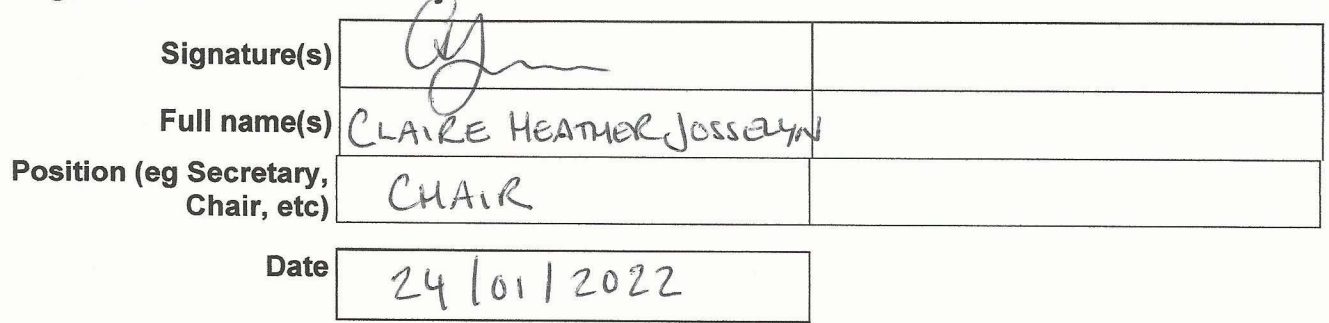 Signature(s)
Full name(s) CLAIRE HEATHER JOSSELYN
Position (eg Secretary,
Chair, etc) CHAIR
Date 24/01/2022